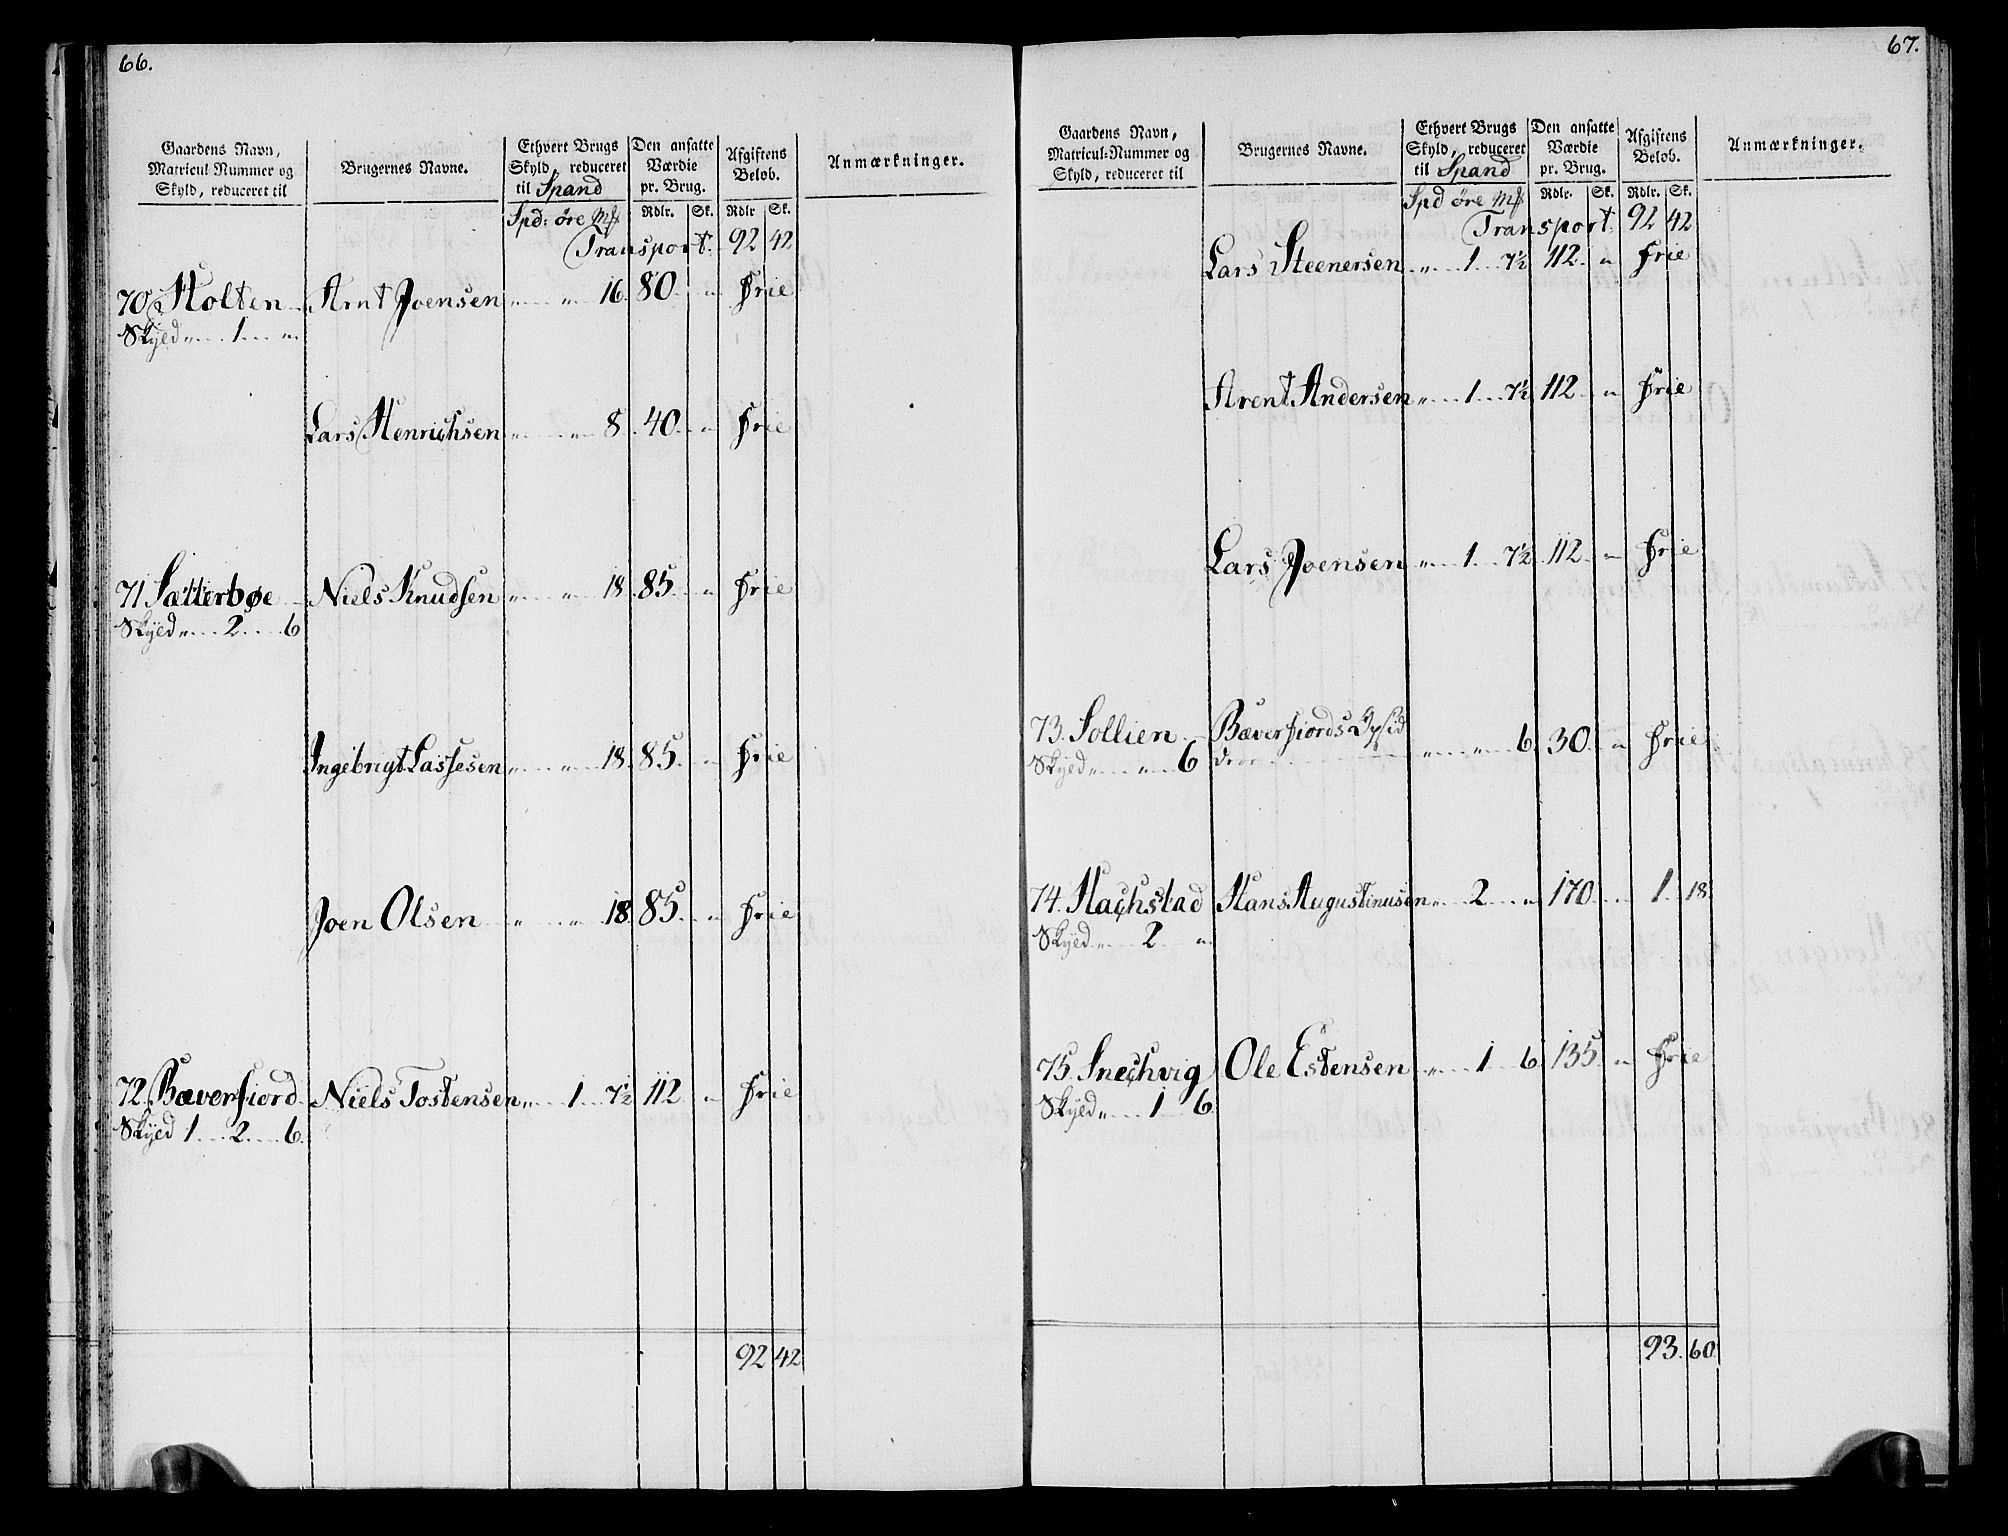 66.
Gaardens Navn, Matricul Nummer og Skyld, reduceret til
Brugernes Navne.
Ethvert Brugs Skyld, reduceret til Spand
Den ansatte Værdie pr. Brug.
Afgiftens Beløb.
Anmærkninger.
Spd: öre Mk Rdlr. Sk. Rdlr Sk.
Transport: 92 42
70 Holten Arnt Joensen „ „ 16. 80 „ Frie
Skyld „ 1 „
Lars Henrichsen „ „ 8. 40 „ Frie
71 Sætterbøe Niels Knudsen „ „ 18. 85 „ Frie
Skyld „ 2 6
Ingebrigt Lassesen „ „ 18. 85 „ Frie
Joen Olsen „ „ 18 85 „ Frie
72. Bæverfiord Niels Tostensen „ 1 7½ 112 „ Frie
Skyld 1 2 6.
92 42
67.
Gaardens Navn, Matricul-Nummer og Skyld, reduceret til
Brugernes Navne.
Ethvert Brugs Skyld, reduceret til Spand
Den ansatte Værdie pr. Brug.
Afgiftens Beløb.
Anmærkninger.
Spd öre Mk Rdlr. Sk. Rdlr. Sk.
Transport: 92 42
Lars Steenersen „ 1 7½ 112 „ Frie
Arent Andersen „ 1 7½ 112 „ Frie
Lars Joensen „ 1 7½ 112 „ Frie
73. Sollien Bæverfiords Opsid
Skyld „ „ 6 dere „ „ 6 30 „ Frie
74. Hachstad Hans Augustinusen „ 2 „ 170 „ 1 18.
Skyld „ 2 „
75. Snechvig Ole Estensen „ 1 6 135 „ Frie
Skyld „ 1 6.
93. 60